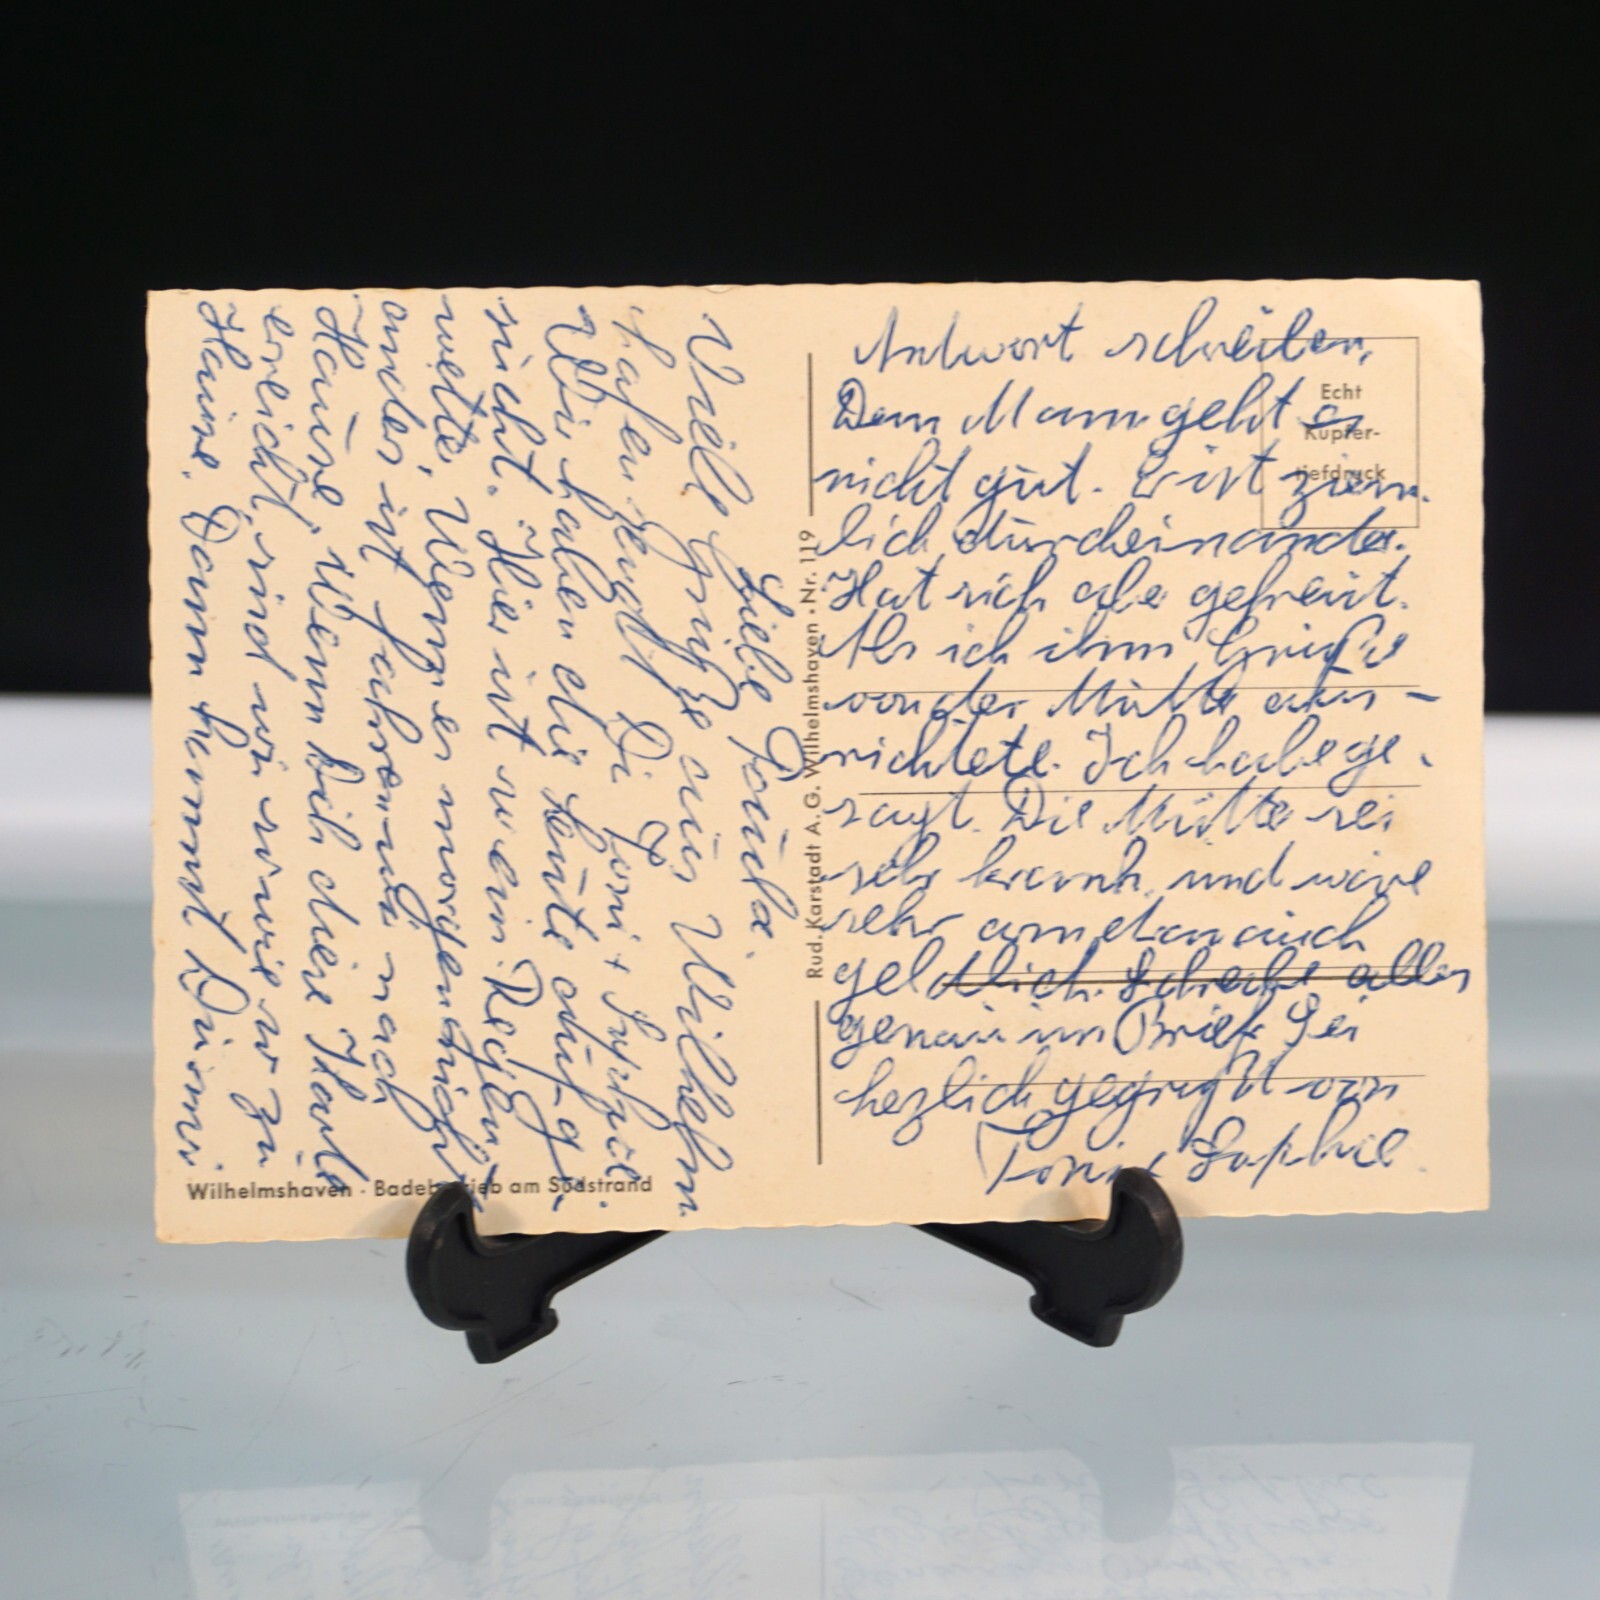 Liebe Paula.
Viele Grüße aus Wilhelm
hafen sendet Di Toni + Sophie.
Wir haben die Leute aufge-
sucht. Hier ist so ein Regen
wetter, wenn es morgen nicht
anders ist fahren wir nach
Hause, wenn Dich diese Karte
erreicht sind wir sowieso zu
Hause. Dann kannst Du mir
Antwort schreiben,
Dem Mann geht es
nicht gut. Er ist ziem-
lich durcheinander.
Hat sich aber gefreut.
Als ich ihm Grüße
von der Mutter aus-
richtete. Ich habe ge-
sagt. Die Mutter sei
sehr krank und wäre
sehr arm dran auch
geldlich. Schreibe alles
genau im Brief. Sei
herzlich gegrüßt von
Toni + Sophie.
Echt
Kupfer-
tiefdruck
Rud. Karstadt A. G. Wilhelmshaven · Nr. 119
Wilhelmshaven · Badebetrieb am Südstrand